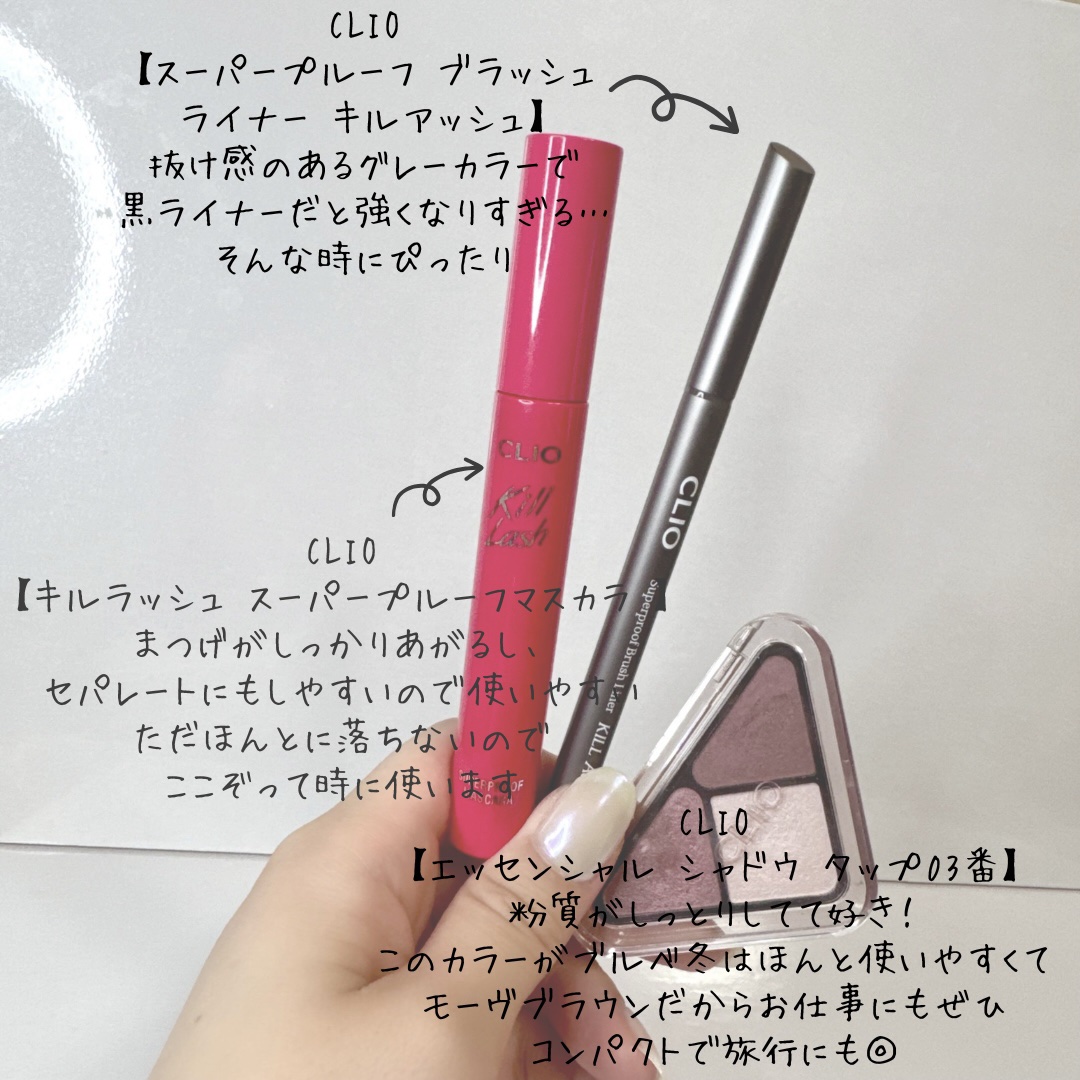 CLIO
【スーパープルーフ ブラッシュ
ライナー キルアッシュ】
抜け感のあるグレーカラーで
黒ライナーだと強くなりすぎる…
そんな時にぴったり
CLIO
Kill
Lash
CLIO
Superproof Brush Liner KILL
CLIO
【キルラッシュ スーパープルーフマスカラ】
まつげがしっかりあがるし、
セパレートにもしやすいので使いやすい
ただほんとに落ちないので
ここぞって時に使います
CLIO
【エッセンシャル シャドウ タップ03番】
粉質がしっとりしてて好き！
このカラーがブルベ冬はほんと使いやすくて
モーヴブラウンだからお仕事にもぜひ
コンパクトで旅行にも◎